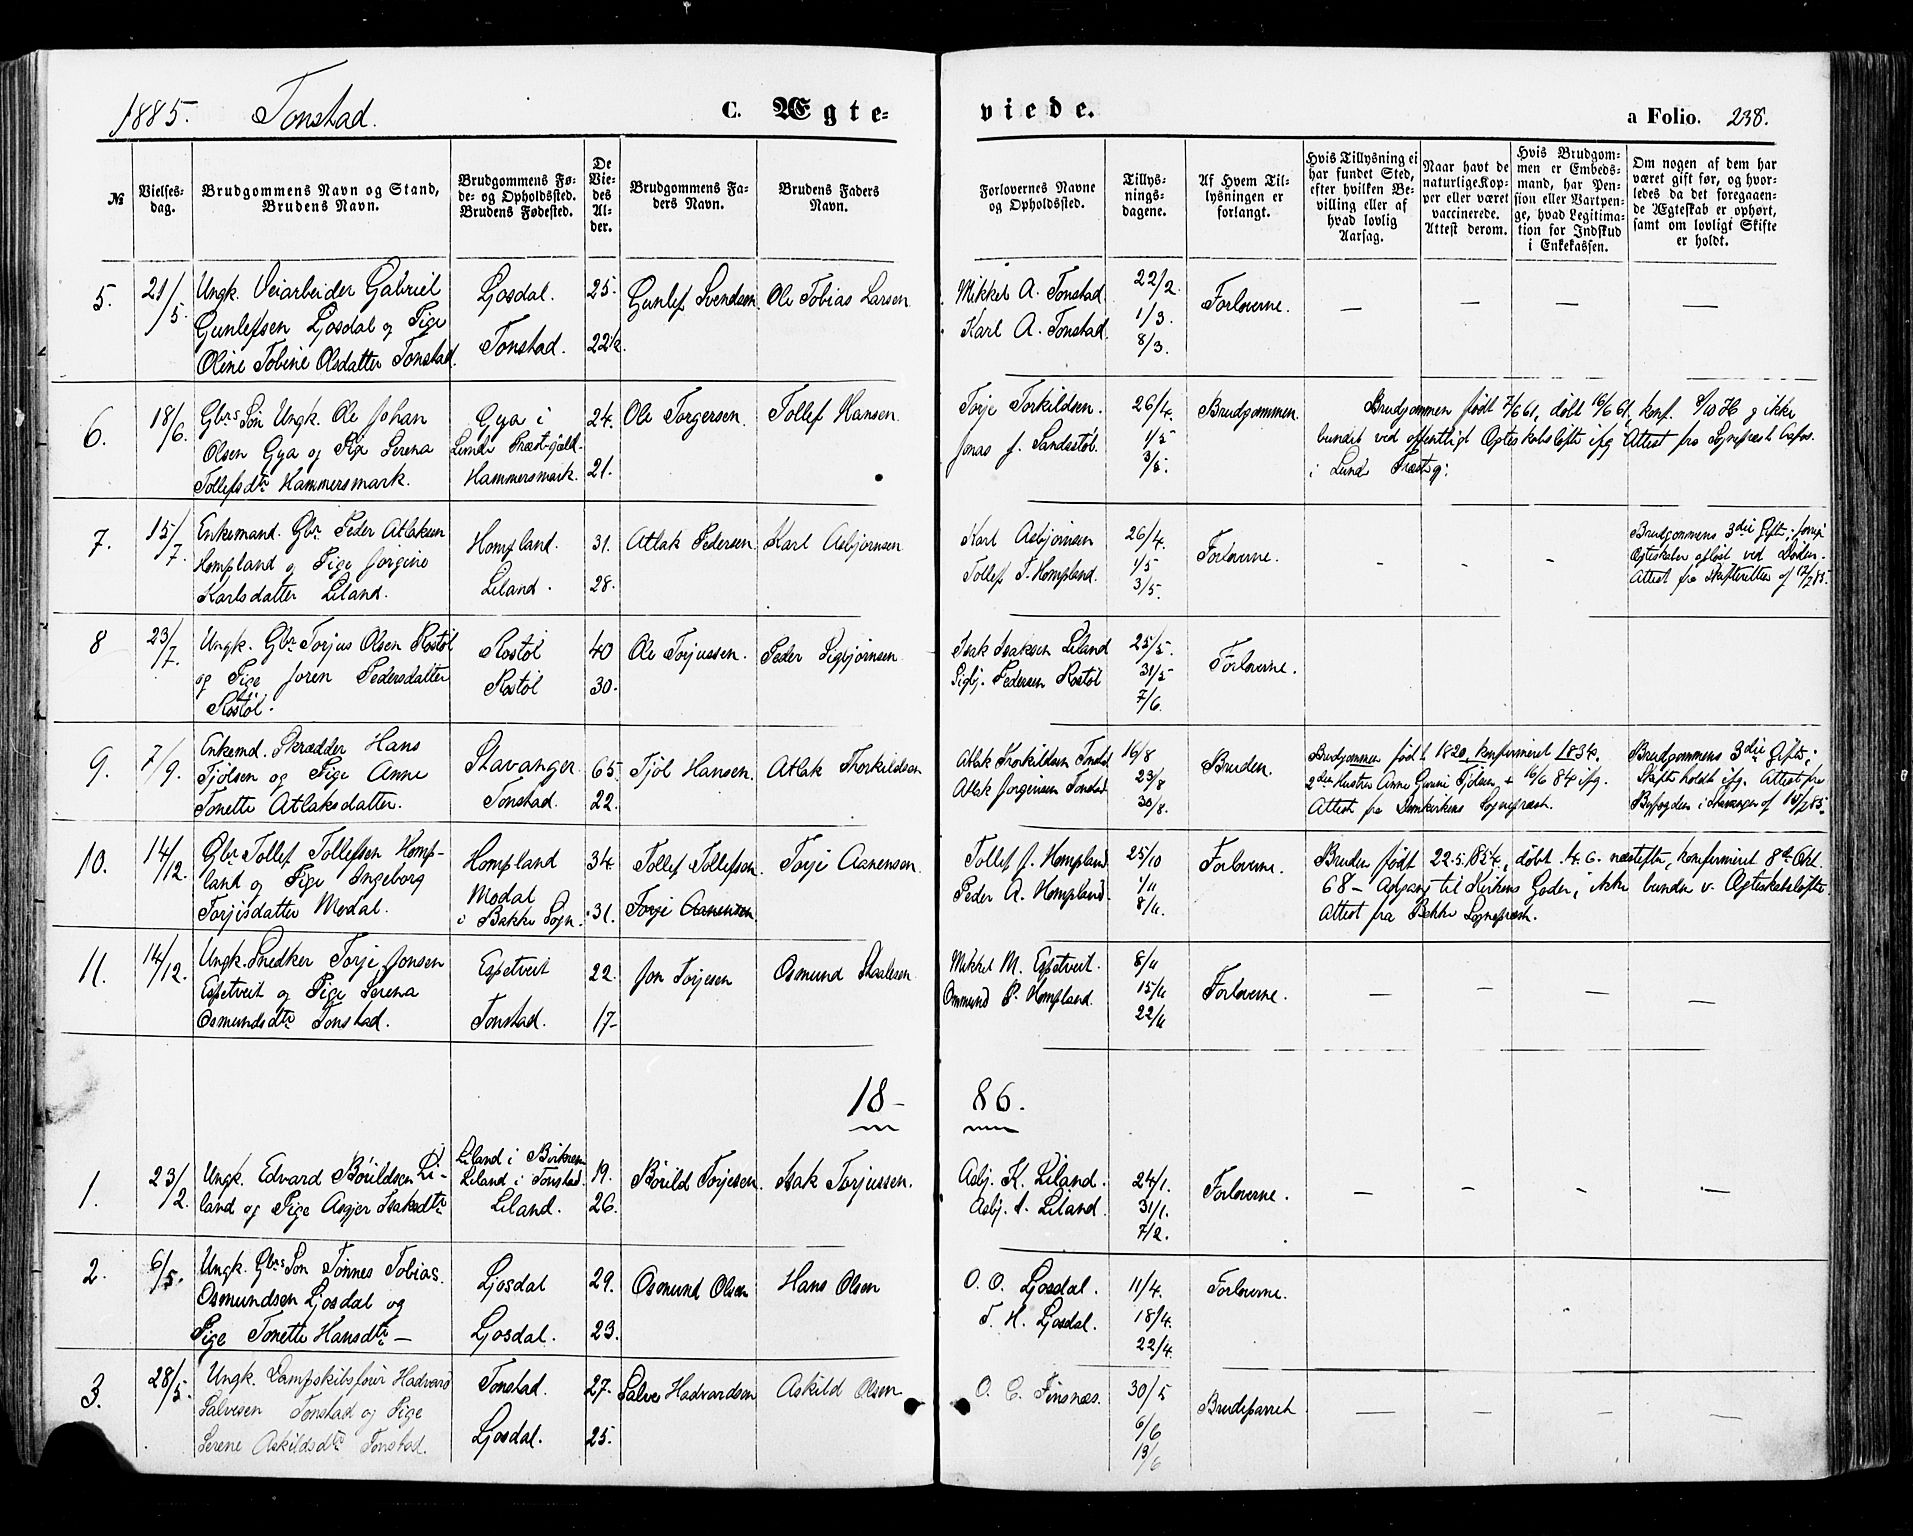 1885. Tonstad. C. Ægte-
viede. a Folio. 238.
№
Vielses-
dag.
Brudgommens Navn og Stand,
Brudens Navn.
Brudgommens Fø-
de- og Opholdssted.
Brudens Fødested.
De
Vie-
des
Al-
der.
Brudgommens Fa-
ders Navn.
Brudens Faders
Navn.
Forlovernes Navne
og Opholdssted.
Tillys-
nings-
dagene.
Af Hvem Til-
lysningen er
forlangt.
Hvis Tillysning ei
har fundet Sted,
efter hvilken Be-
villing eller af
hvad lovlig
Aarsag.
Naar havt de
naturlige Kop-
per eller været
vaccinerede.
Attest derom.
Hvis Brudgom-
men er Embeds-
mand, har Pen-
sion eller Vartpen-
ge, hvad Legitima-
tion for Indskud
i Enkekassen.
Om nogen af dem har
været gift før, og hvor-
ledes da det foregaaen-
de Ægteskab er ophørt,
samt om lovligt Skifte
er holdt.
5. 21/5. Ungk. Veiarbeider Gabriel
Gunlefsen Ljosdal og Pige
Oline Tobine Olsdatter Tonstad.
Ljosdal. 25.
Tonstad. 22½.
Gunlef Svendsen. Ole Tobias Larsen.
Mikkel A. Tonstad. 22/2.
Karl A. Tonstad. 1/3.
8/3.
Forloverne. — — — —
6. 18/6. Gbrs Søn Ungk. Ole Johan
Olsen Gya og Pige Serena
Tollefsdtr Hammersmark.
Gya i 24.
Lunde Præst-gjæld.
Hammersmark. 21.
Ole Torgersen. Tollef Hansen.
Torje Torkildsen. 26/4.
Jonas J. Sandsstøl. 1/5
3/5.
Brudgommen. Brudgommen født 7/6 61, døbt 16/6 61, konf. og ikke
bundet ved offentligt Ægteskabsløfte ifg. Attest fra Sognepræst
i Lunde Præstg:
7. 15/7. Enkemand. Gbr. Peder Atlaksen
Hompland og Pige Jørgine
Karlsdatter Liland.
Hompland. 31.
Liland. 28.
Atlak Pedersen. Karl Asbjørnsen
Karl Asbjørnsen 26/4.
Tollef T. Hompland. 1/5
3/5.
Forloverne. - - -
Brudgommens 3die Gifte;
Ægteskaber opløst ved Døden.
Attest fra Skifteretten af
8 23/7. Ungk. Gbr. Torjus Olsen Røstøl
og Pige Joren Pedersdatter
Røstøl.
Røstøl 40
Røstøl 30.
Ole Torjussen. Peder Sigbjørnsen
Isak Isaksen Liland 25/5.
Sigbj. Pedersen Røstøl 31/5
7/6.
Forloverne.
9. 7/9. Enkemd. Skrædder Hans
Tjølsen og Pige Anne
Tonette Atlaksdatter.
Stavanger 65.
Tonstad. 22.
Tjøl Hansen. Atlak Thorkildsen
Atlak Thorkildsen Tonstad 16/8
Atlak Jørgensen Tonstad 23/8
30/8.
Bruden. Brudgommen født 1820, konfirmeret 1834.
2den Hustru Anne Tjølsen + 16/6 84 ifg.
Attest fra Domkirkens Sognepræst.
Brudgommens 3die Gifte;
Skifte holdt ifg. Attest fra
Byfogden i Stavanger af
10. 14/12. Gbr. Tollef Tollefsen Homp-
land og Pige Ingeborg
Torjisdatter Modal.
Hompland 34.
Modal
i Bakke Sogn. 31.
Tollef Tollefsen. Torje Aanensen.
Torje Aanensen
Tollef J. Hompland. 25/10
Peder A. Hompland. 1/11
8/11.
Forloverne. Bruden født 22.5.1854, døbt 4.6. næstefter, konfirmeret 8de Okt.
68 – Adgang til Kirkens Goder; ikke bunden v. Ægteskabsløfte
Attest fra Bakke Sognepræst.
11. 14/12. Ungk. Snedker Torje Jonsen
Espetveit og Pige Serena
Osmundsdtr Tonstad.
Espetveit 22.
Tonstad. 17-
Jon Torjesen Osmund Staalesen
Mikkel M. Espetveit. 8/11
Ommund P. Hompland. 15/11
22/11
Forloverne. — — — —
18- 86.
1. 23/2. Ungk. Edvard Børildsen Li-
land og Pige Asgjer Isaksdtr
Liland i
Liland i Tonstad. 19.
Liland. 26.
Børild Torjesen. Isak Torjussen.
Asbj. K. Liland. 24/1.
Asbj. A. Liland. 31/1.
7/2.
Forloverne. — - - —
2. 6/5. Ungk. Gbrs Søn Tønnes Tobias.
Osmundsen Ljosdal og
Pige Tonette Hansdtr —
Ljosdal 29.
Ljosdal. 23.
Osmund Olsen Hans Olsen
O. O. Ljosdal. 11/4.
T. H. Ljosdal. 18/4.
22/4.
Forloverne.
3. 28/5. Ungk. Dampskibsfører Hadvard
Salvesen Tonstad og Pige
Serene Askildsdtr Tonstad.
Tonstad. 27.
Ljosdal. 25.
Salve Hadvardsen Askild Olsen
O. C. Finsnæs. 30/5
6/6
13/6
Brudeparret — — — —